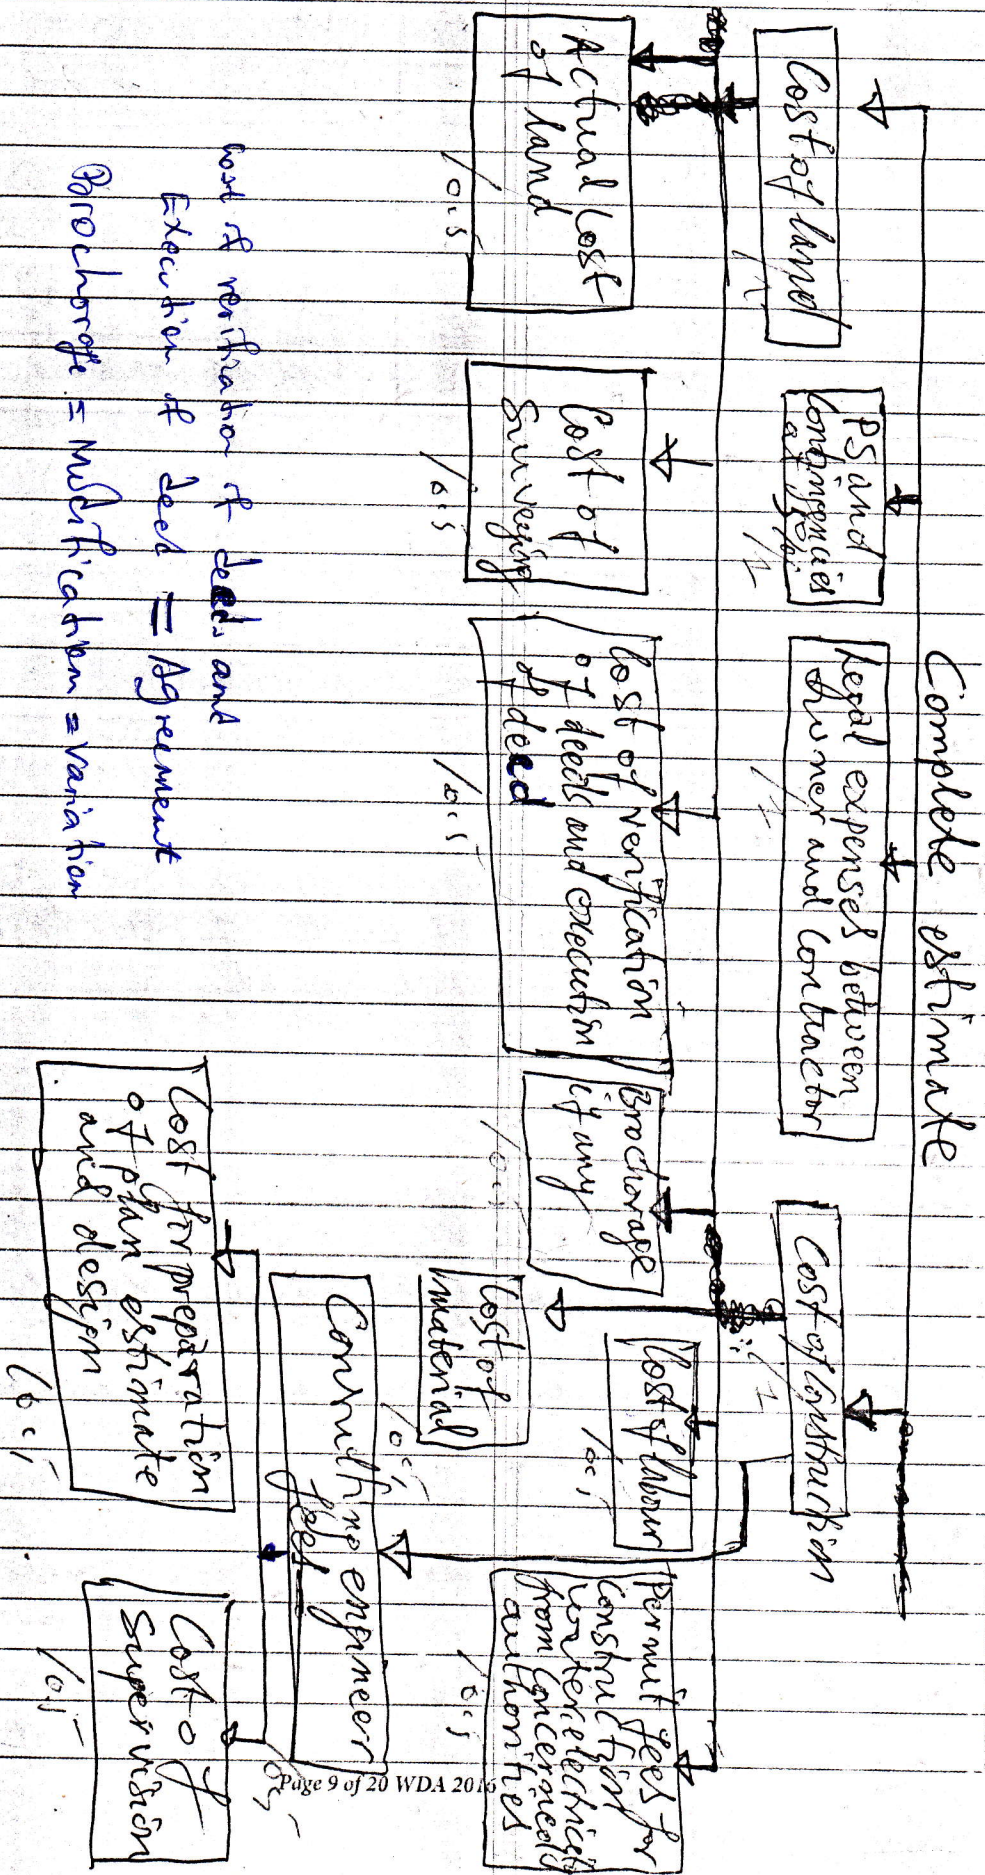 Complete estimate
Cost of land
/1
PS and
Contingencies
at 5%
/1
Legal expenses between
owner and contractor
/1
Cost of Construction
/1
Actual Cost
of land
/0.5
Cost of
Surveying
/0.5
Cost of verification
of deeds and execution
of deed
/0.5
Brochorage
if any
/0.5
Cost of
material
/0.5
Cost of labour
/0.5
Permit fees for
Construction
water electricity
from Concerned
authorities
/0.5
Consulting engineer
fees
0.5
Cost for preparation
of plan estimate
and design
/0.5
Cost of
Supervision
/0.5
Cost of verification of deeds and
Execution of deed = Agreement
Brochorage = Modification = Variation
Page 9 of 20 WDA 2016